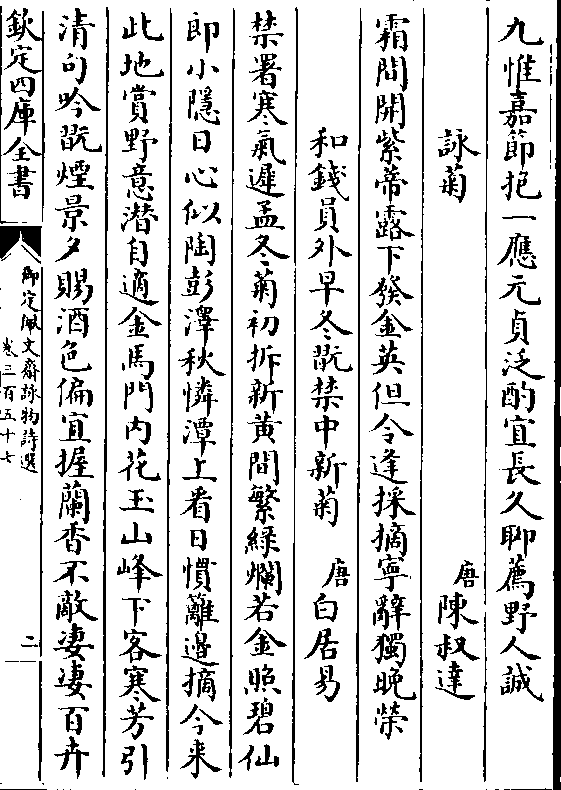 九惟嘉節抱一應元貞泛酌宜長久聊薦野人誠
詠菊　唐陳叔達
霜間開紫蒂露下發金英但令逢採摘寧辭獨晚榮
和錢員外早冬翫禁中新菊　唐白居易
禁署寒氣遲孟冬菊初拆新黃間繁綠爛若金照碧仙
郎小隱日心似陶彭澤秋憐潭上看日慣籬邉摘今来
此地賞野意潛自適金馬門内花玉山峰下客寒芳引
清句吟翫煙景夕賜酒色偏宜握蘭香不敵淒淒百卉
欽定四庫全書
御定佩文齋詠物詩選
卷三百五十七
二